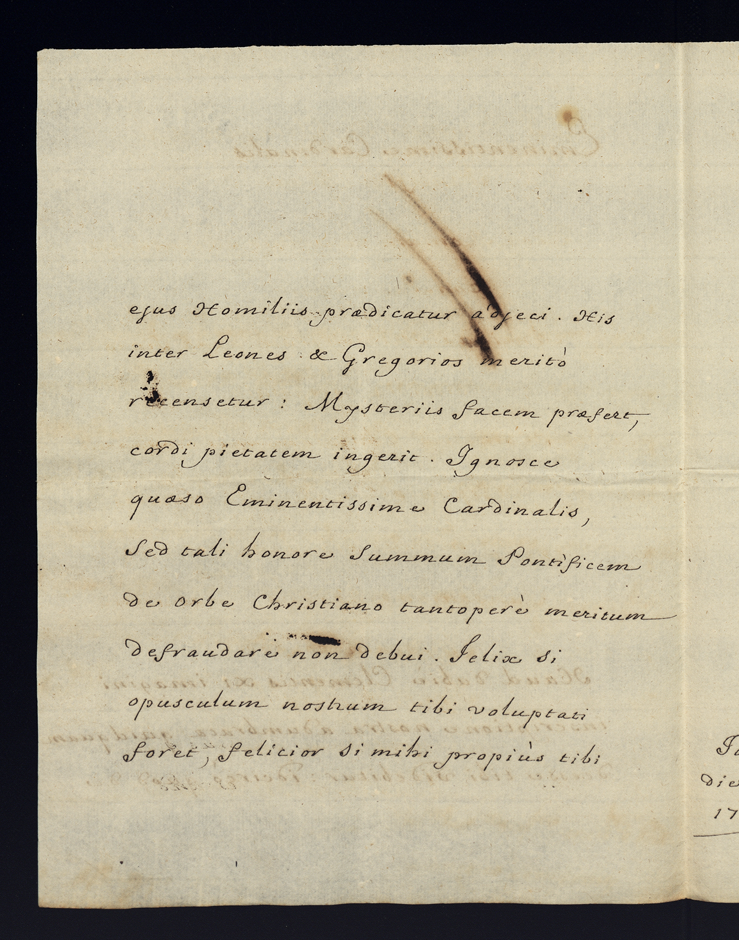 ejus Homiliis prædicatur adjeci. His
inter Leones & Gregorios meritò
recensetur: Mysteriis facem præfert,
cordi pietatem ingerit. Ignosce
quæso Eminentissime Cardinalis,
Sed tali honore Summum Pontificem
de orbe Christiano tantoperè meritum
defraudare non debui. Felix si
opusculum nostrum tibi voluptati
foret, felicior si mihi propiùs tibi
die
17